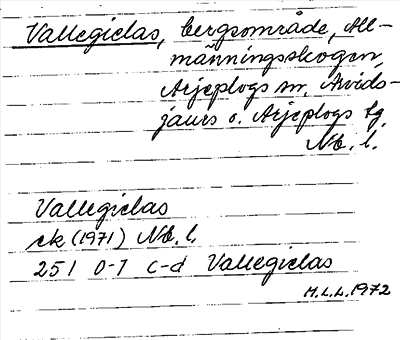 Vallegielas, bergsområde, All-
männingsskogen,
Arjeplogs sn, Arvids-
jaurs o. Arjeplogs tg,
Nb. l.
Vallegielas
ek (1971) Nb. l.
251 0-1 c-d Vallegielas
M.L.L. 1972